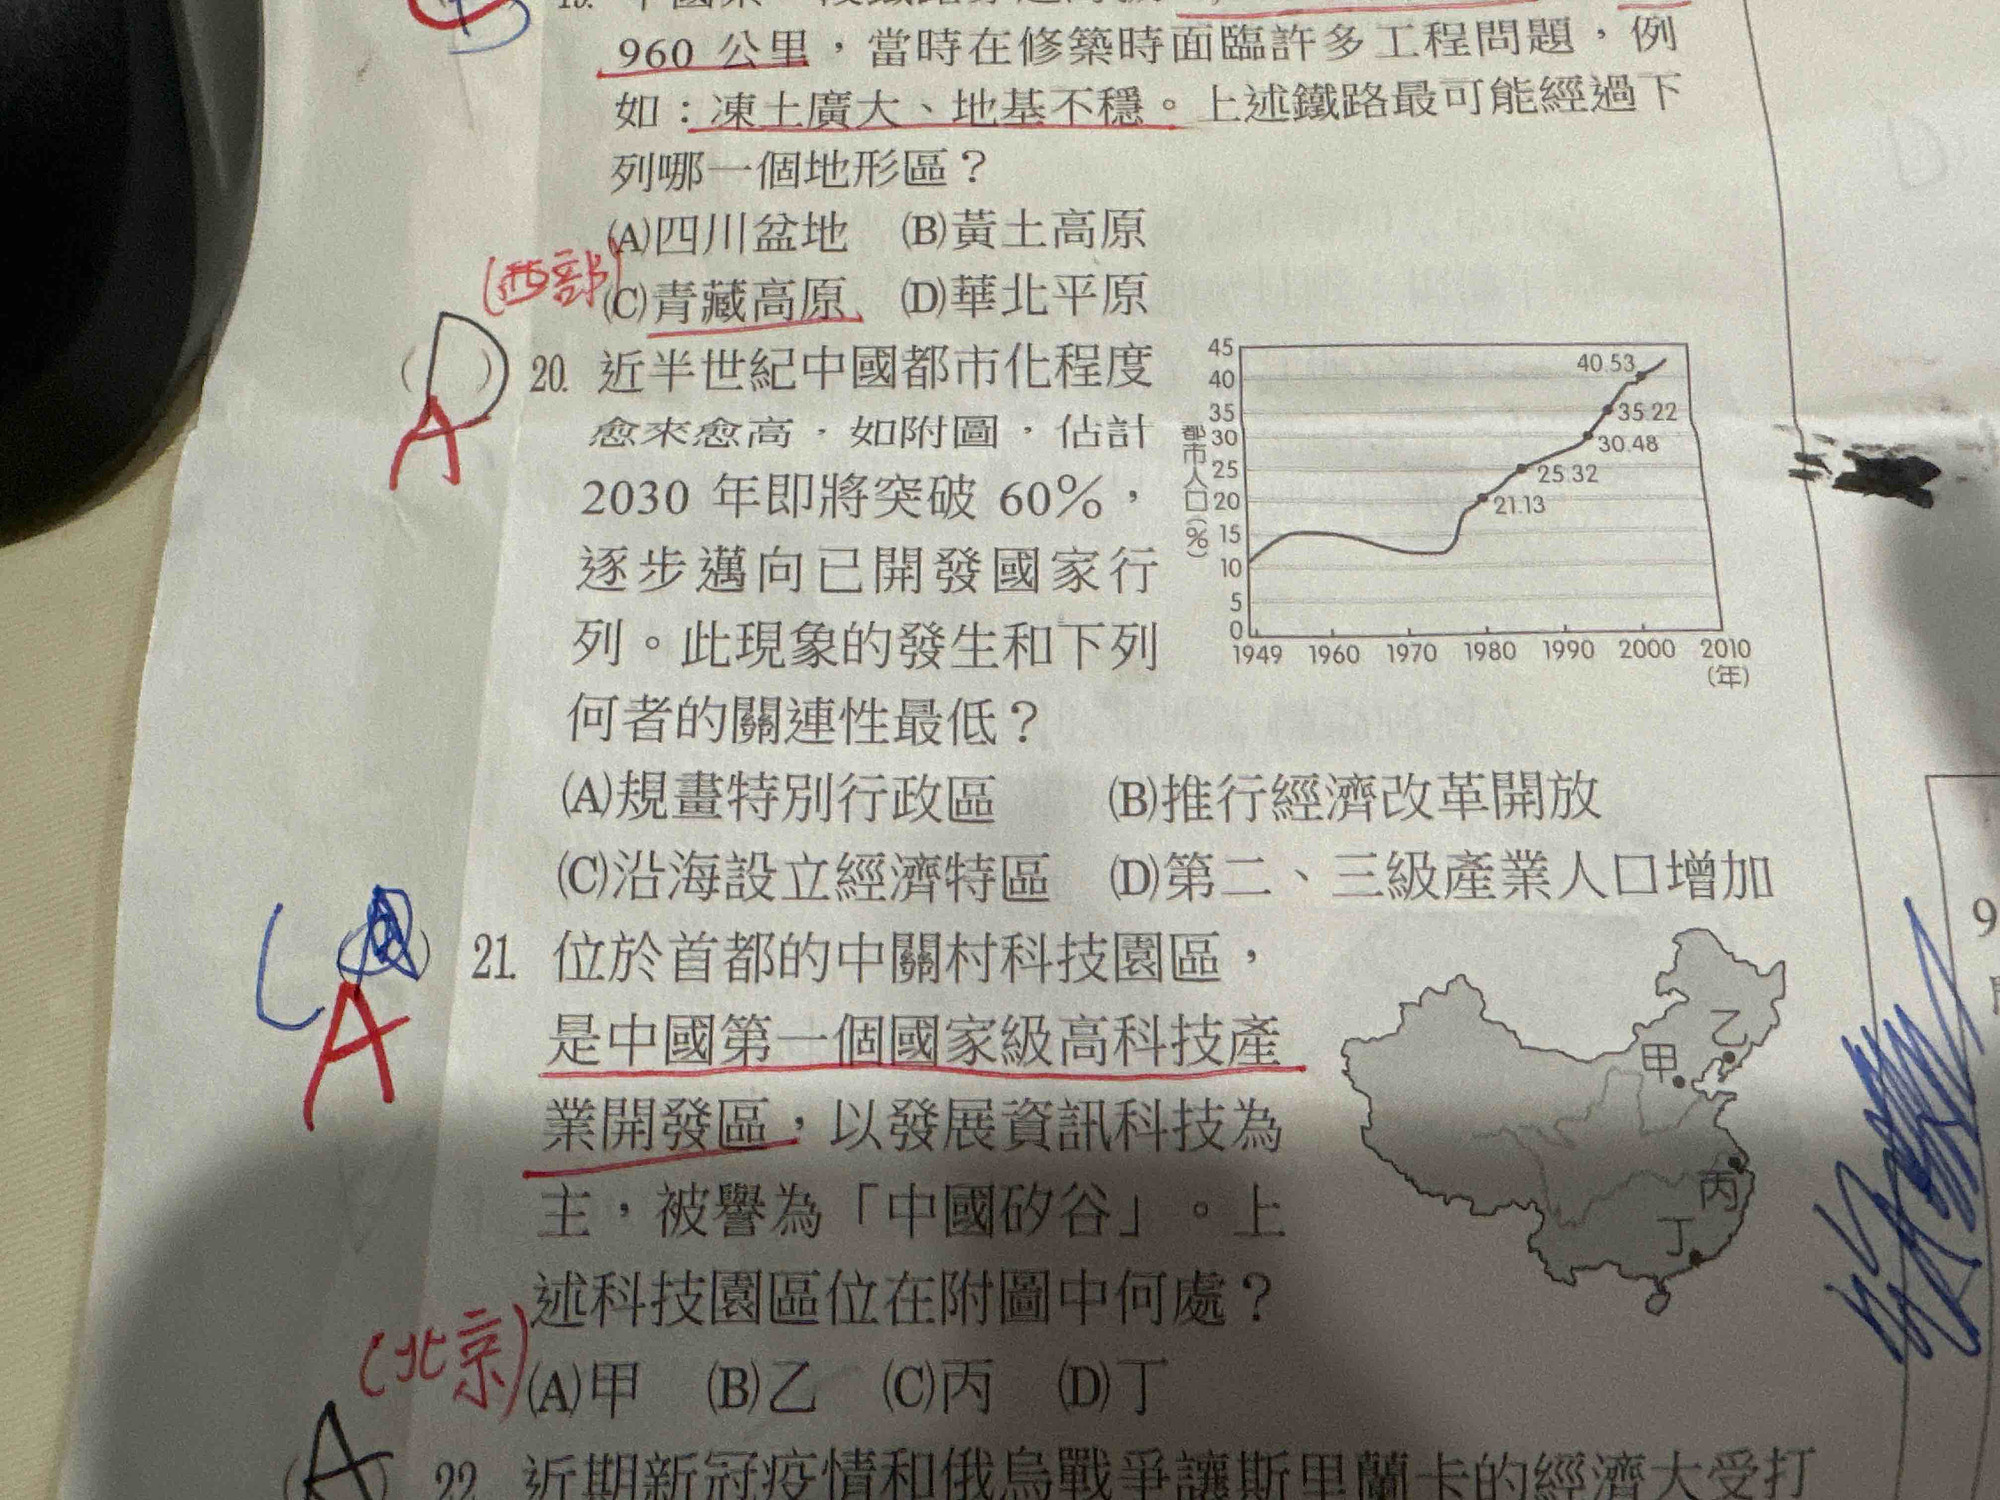 960 公里，當時在修築時面臨許多工程問題，例
如：凍土廣大、地基不穩。上述鐵路最可能經過下
列哪一個地形區？
(A)四川盆地 (B)黃土高原
(西部)
(C)青藏高原 (D)華北平原
D
A
( ) 20. 近半世紀中國都市化程度
愈來愈高，如附圖，估計
2030 年即將突破 60%，
逐步邁向已開發國家行
列。此現象的發生和下列
何者的關連性最低？
都市人口(%)
45
40
35
30
25
20
15
10
5
0
40.53
35.22
30.48
25.32
21.13
1949 1960 1970 1980 1990 2000 2010
(年)
(A)規畫特別行政區 (B)推行經濟改革開放
(C)沿海設立經濟特區 (D)第二、三級產業人口增加
A
( ) 21. 位於首都的中關村科技園區，
是中國第一個國家級高科技產
業開發區，以發展資訊科技為
主，被譽為「中國矽谷」。上
述科技園區位在附圖中何處？
乙
甲
丙
丁
(北京)
(A)甲 (B)乙 (C)丙 (D)丁
A
22. 近期新冠疫情和俄烏戰爭讓斯里蘭卡的經濟大受打
9